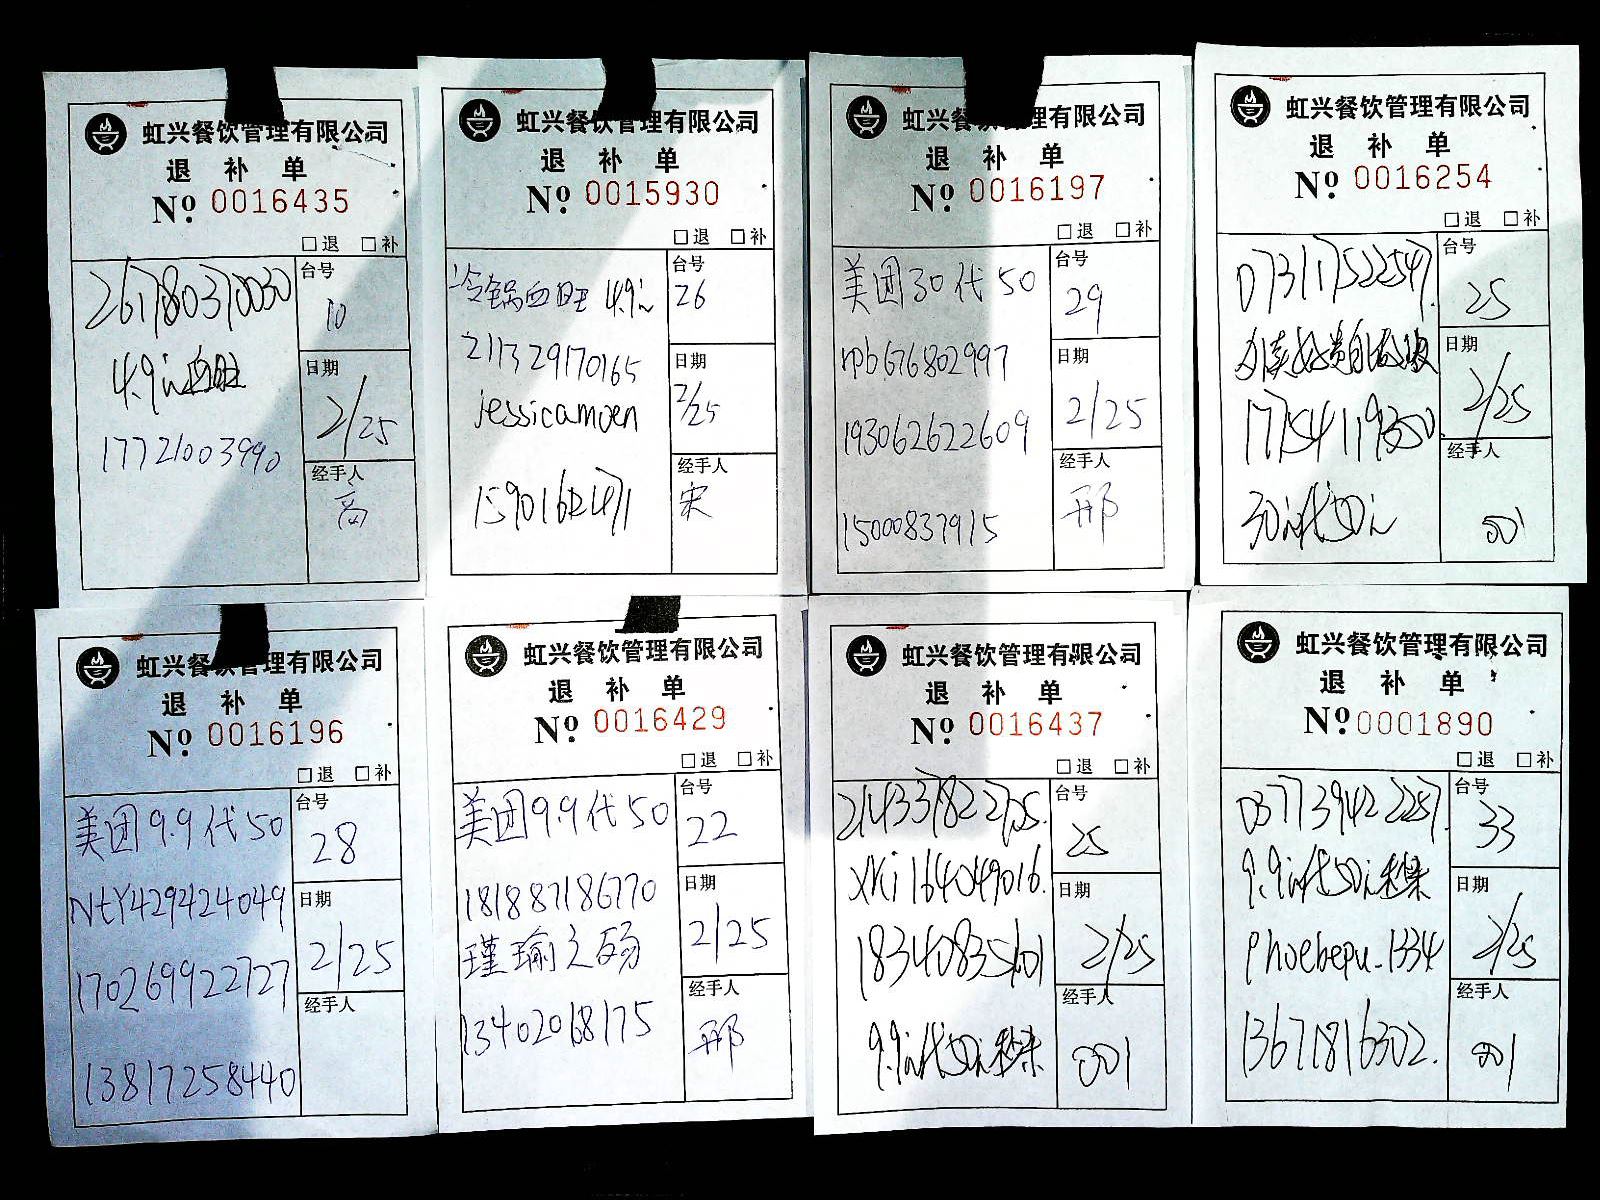 虹兴餐饮管理有限公司
退 补 单
Nº 0016435
□退 □补
261780370030
台号
10
4.9元血旺
日期
2/25
17721003990
经手人
高
虹兴餐饮管理有限公司
退 补 单
Nº 0015930
□退 □补
冷锅血旺 4.9元
台号
26
211329170165
日期
2/25
jessicamoen
经手人
宋
虹兴餐饮管理有限公司
退 补 单
Nº 0016197
□退 □补
美团30代50
台号
29
日期
2/25
193062622609
经手人
邢
15000837915
虹兴餐饮管理有限公司
退 补 单
Nº 0016254
□退 □补
073117522547
台号
25
日期
2/25
17754119350
经手人
30元代50元
001
虹兴餐饮管理有限公司
退 补 单
Nº 0016196
□退 □补
美团9.9代50
台号
28
NtY429424049
日期
2/25
170269922727
经手人
13817258440
虹兴餐饮管理有限公司
退 补 单
Nº 0016429
□退 □补
美团9.9代50
台号
22
181887186770
日期
2/25
瑾瑜之
经手人
邢
13402068175
虹兴餐饮管理有限公司
退 补 单
Nº 0016437
□退 □补
台号
25
xki164049016.
日期
2/25
经手人
9.9元代50元秒杀
001
虹兴餐饮管理有限公司
退 补 单
Nº 0001890
□退 □补
037739422257.
台号
33
9.9元代50元秒杀
日期
2/25
phoebepu_1334
经手人
13671816302.
001